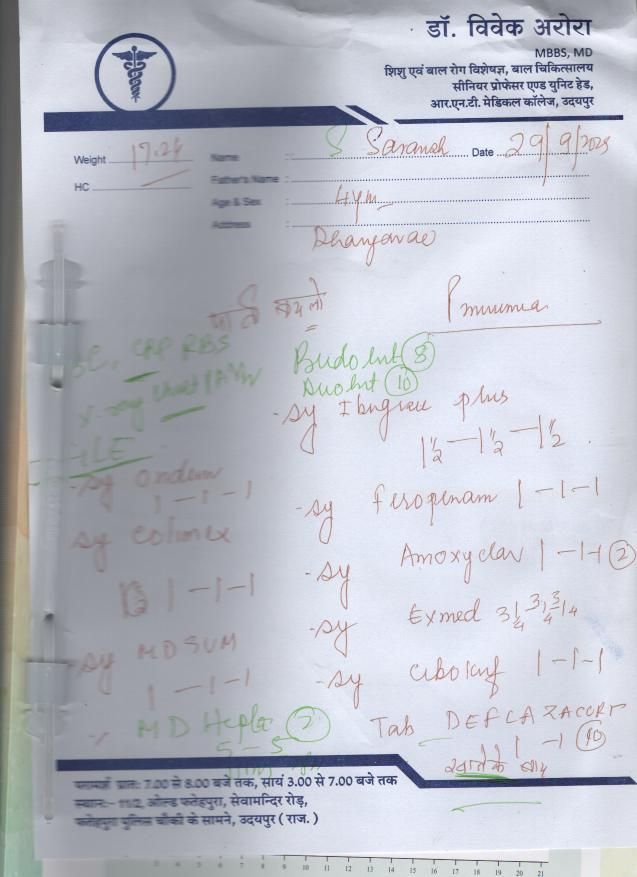 डॉ. विवेक अरोरा
MBBS, MD
शिशु एवं बाल रोग विशेषज्ञ, बाल चिकित्सालय
सीनियर प्रोफेसर एण्ड यूनिट हेड,
आर.एन.टी. मेडिकल कॉलेज, उदयपुर
Weight 17.24 Name : S Saransh Date 29/9/2025
HC Father's Name :
Age & Sex : 4ym
Address :
Pnuumea
CRP RBS
Budo 8
Duo 10
X-ray
sy plus
1 1/2 - 1 1/2 - 1 1/2
sy Ondem
1 - 1 - 1
sy Feropenam 1 - 1 - 1
sy Colimex
1 - 1 - 1
sy Amoxyclav 1 - 1 - 1 2
sy Exmed
sy MDSUM
1 - 1 - 1
sy 1 - 1 - 1
MD 2
5 - 5
Tab DEFLAZACORT
1 - 1 10
खाने के बाद
परामर्श प्रातः 7.00 से 8.00 बजे तक, सायं 3.00 से 7.00 बजे तक
स्थान:- 11/2, ओल्ड फतेहपुरा, सेवामन्दिर रोड़,
फतेहपुरा पुलिस चौकी के सामने, उदयपुर ( राज. )